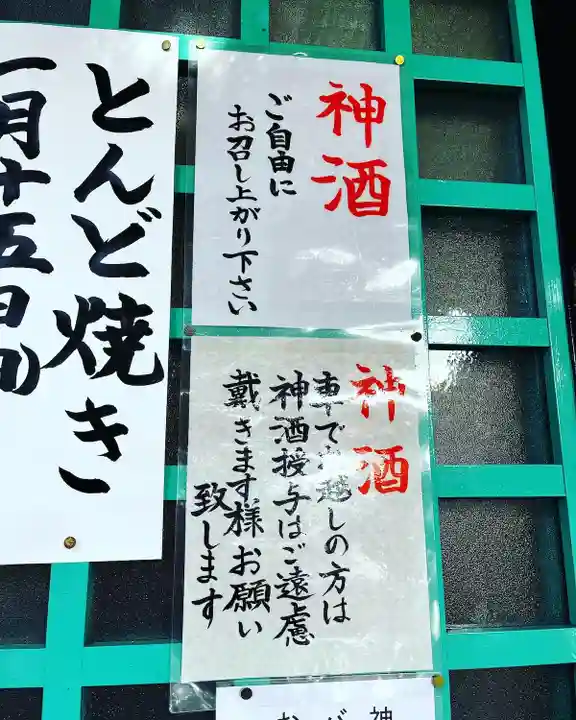 神酒
ご自由に
お召し上がり下さい
神酒
車でお越しの方は
神酒授与はご遠慮
戴きます様お願い
致します
とんど焼き
一月十五日
神